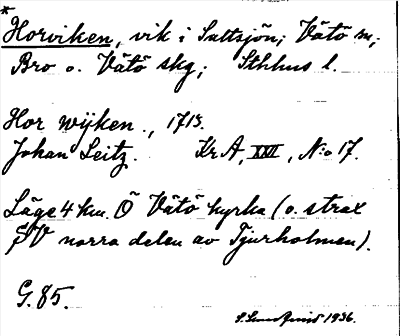 *
Horviken, vik i Saltsjön; Vätö sn;
Bro o. Vätö skg; Sthlms l.
Hor wijken., 1713.
Johan Leitz. Kr A, XXVI, N:o 17.
Läge 4 km. Ö Vätö kyrka (o. strax
SV norra delen av Tjurholmen).
G. 85.
1936.